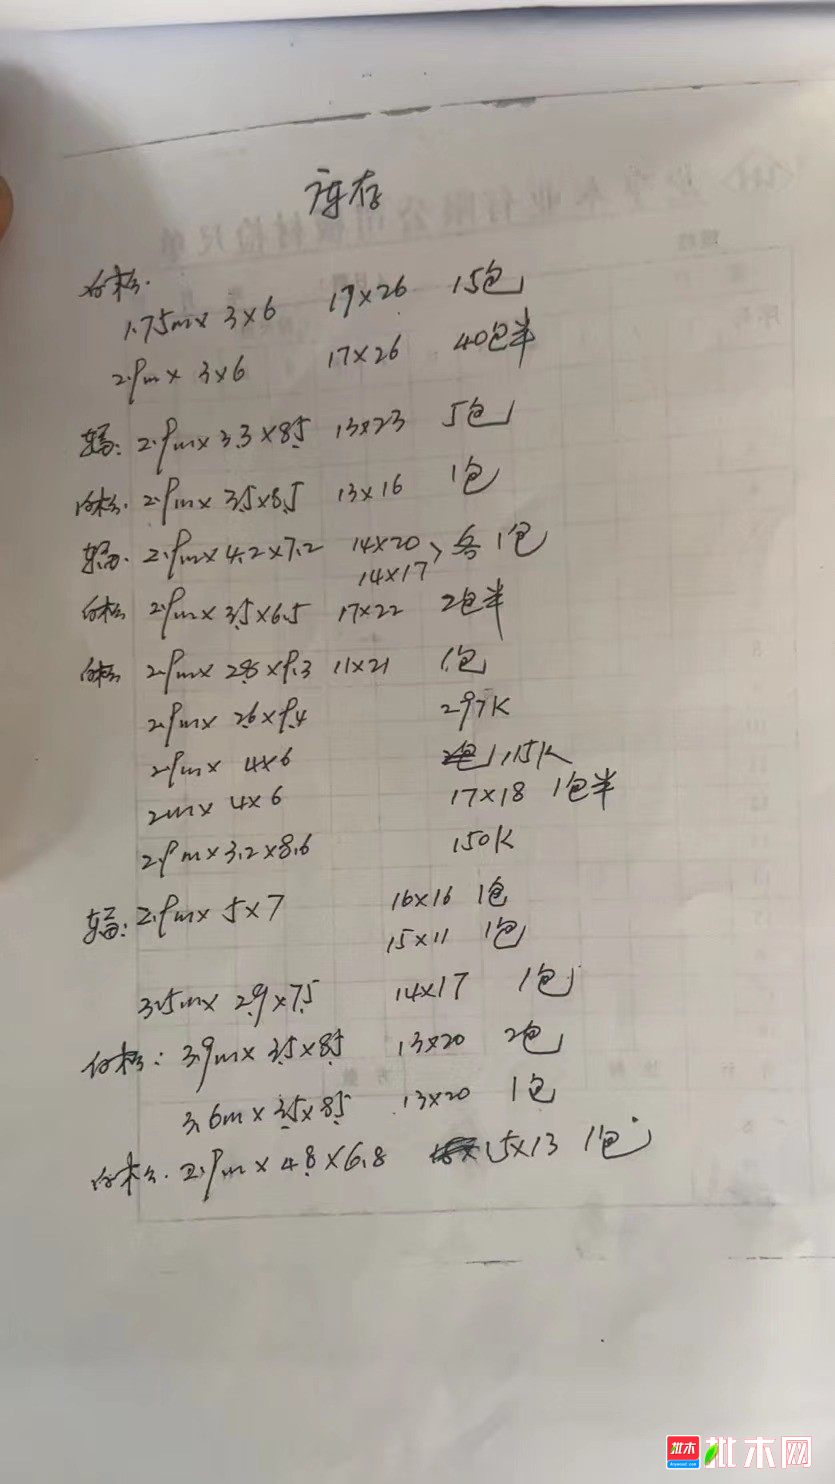 库存
白松.
1.75m×3×6 17×26 15包
2.9m×3×6 17×26 40包半
2.9m×3.3×8.5 13×23 5包
白松. 2.9m×3.5×8.5 13×16 1包
2.9m×4.2×7.2 14×20 > 各1包
14×17
白松 2.9m×3.5×6.5 17×22 2包半
白松 2.9m×2.8×9.3 11×21 1包
2.9m×2.6×9.4 297K
2.9m×4×6 115K
2m×4×6 17×18 1包半
2.9m×3.2×8.6 150K
2.9m×5×7 16×16 1包
15×11 1包
3.5m×2.9×7.5 14×17 1包
白松: 3.9m×3.5×8.5 13×20 2包
3.6m×3.5×8.5 13×20 1包
白松. 2.9m×4.8×6.8 15×13 1包
木业有限公司板材检尺单
批木 批木网